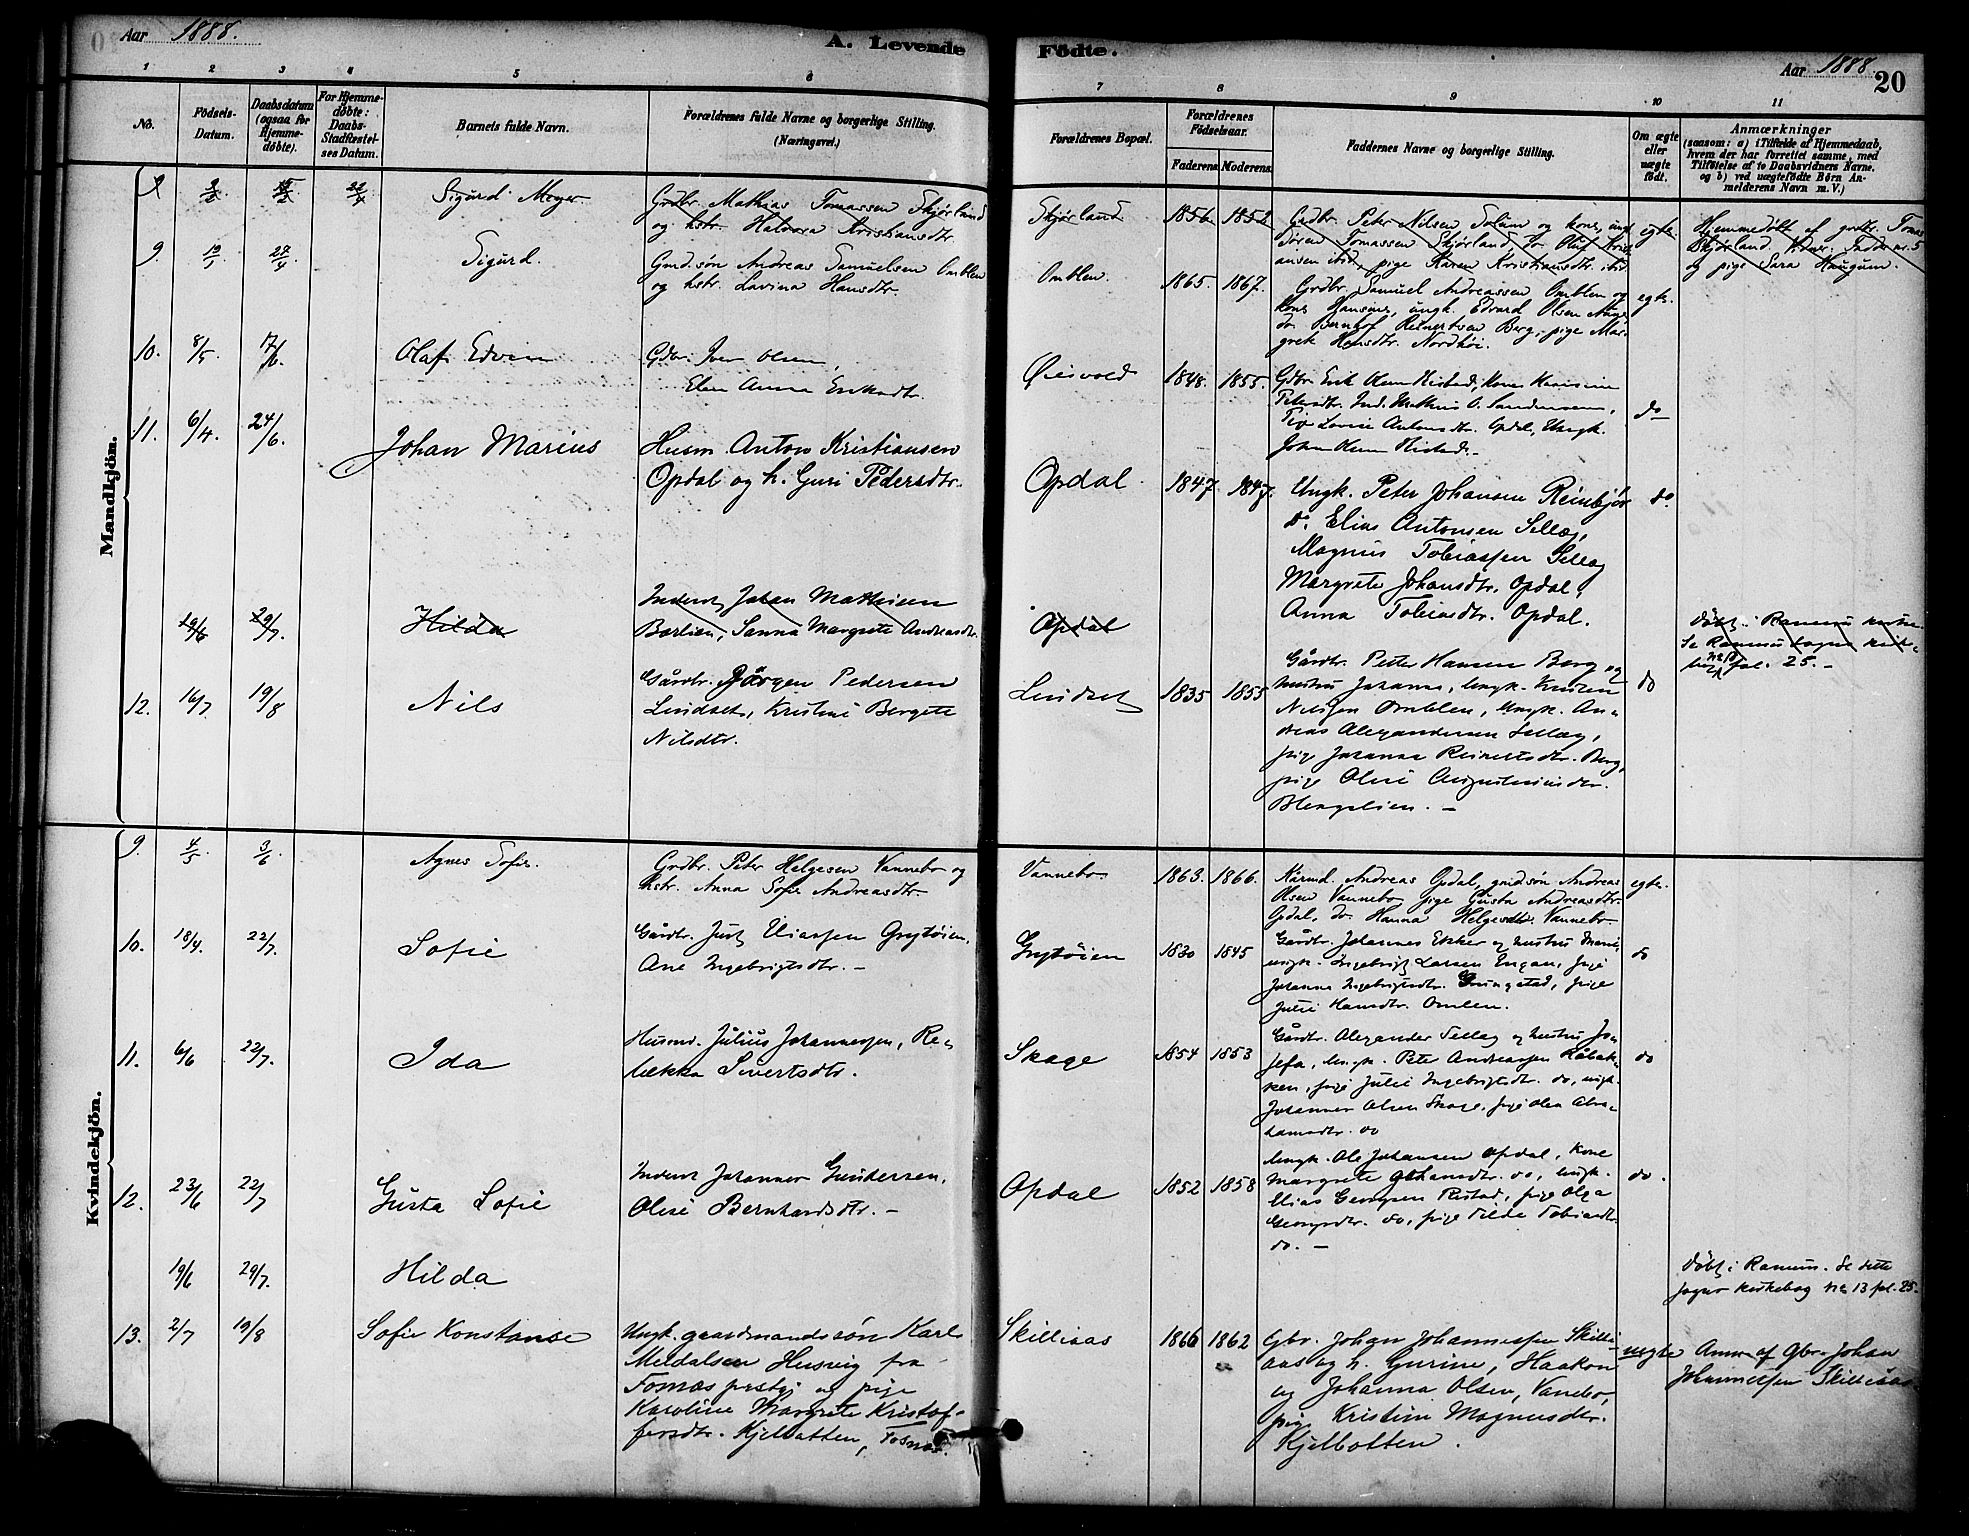 Aar 1888.
A. Levende Födte.
Aar 1888.
20
1
2
3
4
5
6
7
8
9
10
11
No.
Födsels-
Datum.
Daabsdatum
(ogsaa for
Hjemme-
döbte).
For Hjemme-
döbte:
Daabs-
Stadfæstel-
ses Datum.
Barnets fulde Navn.
Forældrenes fulde Navne og borgerlige Stilling.
(Næringsvei.)
Forældrenes Bopæl.
Forældrenes
Födselsaar.
Faderens
Moderens
Faddernes Navne og borgerlige Stilling.
Om ægte
eller
uægte
födt.
Anmærkninger
(saasom: a) i Tilfælde af Hjemmedaab,
hvem der har forrettet samme, med
Tilföielse af to Daabsvidners Navne.
og b) ved uægtefödte Börn An-
melderens Navn m. V.)
Mandkjön.
Sigurd Meyer
Grdbr. Mathias Tomassen Skjørland
og hstr. Halvora Kristiansdtr.
Skjørland
1856. 1852
Grdbr. Peter Nilsen Solum og kone, ungk.
Sören Tomassen Skjørland, do Oluf Kristi-
ansen ibid, pige Karen Kristiansdtr. ibid
egte.
Hjemmedøbt af grdbr. Tomas
Skjørland.
og pige Sara Haugum.
9 27/4
Sigurd.
Gmd.søn Andreas Samuelsen Omblen
og hstr. Lavina Hansdtr.
Omblen
1865. 1867.
Grdbr. Samuel Andreassen Omblen og
kone Hansine, ungk. Edvard Olsen
do. Bernhof Reinertsen Berg, pige Mar-
grete Hansdtr. Nordhöi.
egte.
10. 8/5 17/6.
Olaf Edvin
Gdbr. Iver Olsen,
Elen Anna Eriksdtr.
Øiesvold
1848. 1855.
Gdbr. Erik Olsen Ristad, Kone
Petersdtr. Ind. Mathias O.
Lovise Opdal, Ungk.
Johan Olsen Ristad.
do
11. 6/4. 24/6.
Johan Marius
Husm. Anton Kristiansen
Opdal og h. Guri Pedersdtr.
Opdal.
1847. 1847.
Ungk. Peter Johansen Reinbjör
do. Elias Antonsen Sellæg,
Magnus Tobiassen Sellæg
Margrete Johansdtr. Opdal,
Anna Tobiasdtr. Opdal.
do.
19/6 29/7.
Hilda
Inderst Johan Mathisen
Barlien, Sanna Margrete Andreasdtr.
Opdal
Döbt i Ranem kirke.
Se Ranem sogns kirke-
bog No 13 fol. 25. —
12. 16/7 19/8
Nils
Gårdbr. Jørgen Pedersen
Lindset, Kristine Bergete
Nilsdtr.
Lindset
1835 1855
Gårdbr. Petter Hansen Berg og
hustru Johanna, Ungk. Kristen
Nilssen Omblen, Ungk. An-
dreas Alexandersen Sellæg,
pige Johanna Reinertsdtr. Berg,
pige Oline Augustinusdtr.
Blengslien. —
do
Kvindekjön.
9. 4/5. 3/6.
Agnes Sofie.
Grdbr. Peter Helgesen Vannebo og
hstr. Anna Sofie Andreasdtr
Vannebo
1863. 1866.
Kårmd. Andreas Opdal, gmd.søn Andreas
Olsen Vannebo pige Gusta Andreasdtr.
Opdal, do. Hanna Helgesdtr. Vannebo
egte.
10. 18/4. 22/7.
Sofie
Gårdbr. Just Eliassen Grytöien,
Ane Ingebrigtsdtr. —
Grytöien
1830 1845
Gårdbr. Johannes Ekker og hustru Marie,
ungk. Ingebrigt Larsen Engan, pige
Johanna Ingebrigtsdtr. Grungstad, pige
Julie Hansdtr. Omlen.
do
11. 6/6 22/7.
Ida
Husmd. Julius Johannessen, Re-
bekka Sivertsdtr.
Skage
1854 1853
Gårdbr. Alexander Sellæg og hustru Jo-
sefa, Ungk. Peter Andreassen Råbak-
ken, pige Julie Ingebrigtsdtr. do, ungk.
Johannes Olsen Skage, pige Olea Abra-
hamsdtr. do
do
12. 23/6 22/7
Gusta Sofie
Inderst Johannes Gundersen,
Oline Bernhardsdtr. —
Opdal
1852 1858
Ungk. Ole Johansen Opdal, Kone
Margrete Johansdtr. do, ungk.
Elias Georgsen Ristad, pige Olga
Georgsdtr. do, pige Tilde Tobiasdtr.
do. —
do.
19/6 29/7.
Hilda
Döbt i Ranem. Se dette
sogns kirkebog No 13 fol. 25.
13. 2/7 19/8
Sofie Konstanse
Ungk. gaardmandssön Karl
Meldalsen Husvig fra
Fosnæs prstgj og pige
Karoline Margrete Kristof-
fersdtr. Kjelbotten, Fosnæs.
Skilliaas
1866 1862
Gbr. Johan Johannessen Skilli-
aas og h. Gurine, Haakon
og Johanna Olsen, Vanebo,
pige Kristine Magnusdtr.
Kjelbotten.
uegte
Anm. af Gbr. Johan
Johannessen Skilliaas